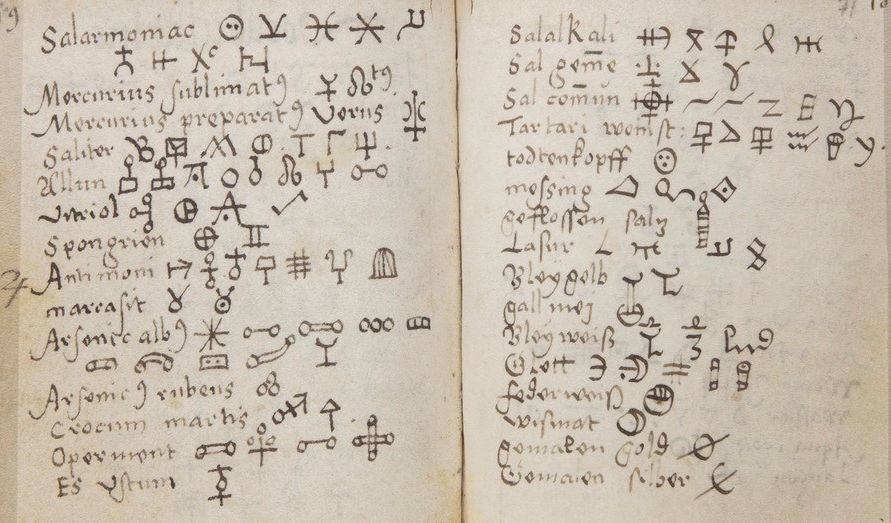 Salarmoniac
Mercurius sublimatꝰ
Mercurius preparatꝰ Verus
Saliter
Allun
Vitriol
Spongrien
Antimoni
marcasit
Arsenic albꝰ
Arsenicꝰ rubeus
Crocum martis
Operment
Es Ustum
SalalKali
Sal gem̅e
Sal com̅un
Tartari weinst:
todtenkopff
messing
geflossen saltz
Lasur
Bleygelb
gallmej
Bleyweiß
Glett
federweiß
wismat
gemalen gold
Gemalen silber